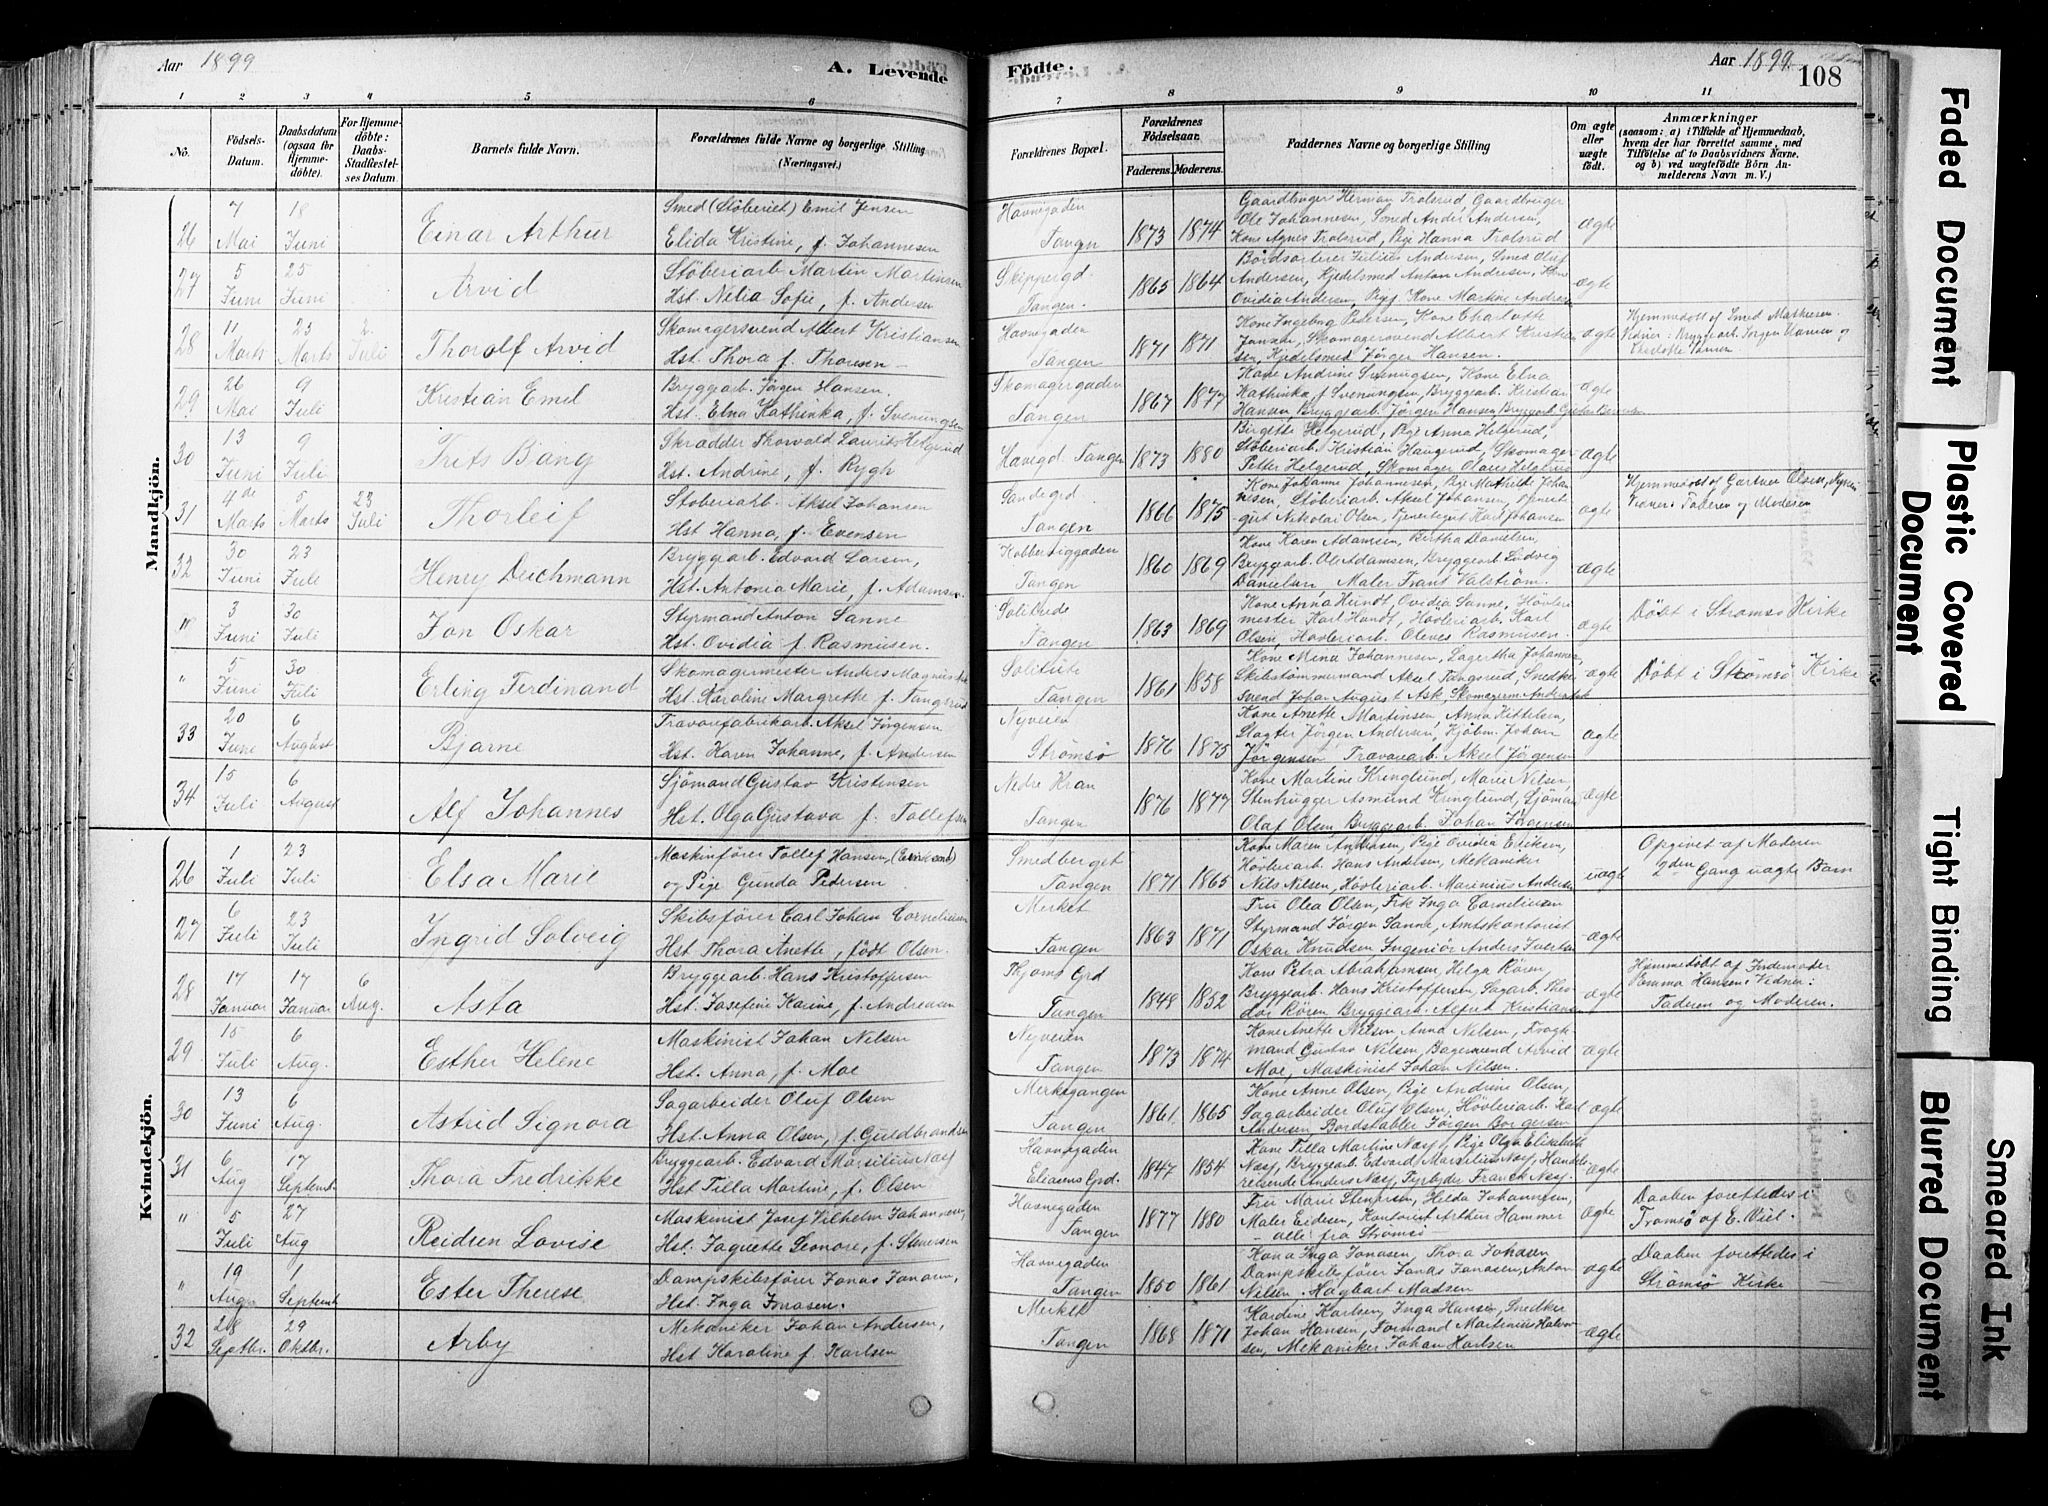 Aar 1899
A. Levende
Födte.
Aar 1899
108
1 2 3 4 5 6 7 8 9 10 11
No.
Födsels-Datum.
Daabsdatum (ogsaa för Hjemmedöbte).
For Hjemmedöbte: Daabs-Stadfæstelses Datum.
Barnets fulde Navn.
Forældrenes fulde Navne og borgerlige Stilling (Næringsvei).
Forældrenes Bopæl.
Forældrenes Födselsaar.
Faderens. Moderens.
Faddernes Navne og borgerlige Stilling
Om ægte eller uægte födt.
Anmærkninger
(saasom: a) i Tilfælde af Hjemmedaab, hvem der har forrettet samme, med Tilföielse af to Daabsvidners Navne, og b) ved uægtefödte Börn Anmelderens Navn m. V.)
Mandkjön.
26 7 Mai 18 Juni Einar Arthur
Smed (Stöberiet) Emil Jensen
Elida Kristine, f. Johannesen
Havnegaden Tangen 1873 1874
Gaardbruger Herman Trolsrud, Gaardbruger
Ole Johannesen, Smed Ander Andersen,
Kone Agnes Trolsrud, Pige Hanna Trolsrud
ægte
27 5 Juni 25 Juni Arvid
Stöberiarb Martin Martinsen
Hst. Nelia Sofie, f. Andersen
Skippergd. Tangen. 1865 1864
Bordsorterer Julius Andersen, Smed Oluf
Andersen, Kjedelsmed Anton Andersen, Kone
Ovidia Andersen, Kone Martine Andres
ægte
28 11 Marts 25 Marts 2. Juli Thorolf Arvid
Skomagersvend Albert Kristiansen
Hst. Thora f. Thoresen
Havnegaden Tangen 1871 1871
Kone Ingeborg Pedersen, Kone Charlotte
Jansen, Skomagersvend Albert Kristian
sen, Kjedelsmed Jörger Hansen.
ægte
Hjemmedöbt af Smed Mathiesen.
Vidner: Bryggearb. Jörgen Jansen og
Charlotte Jansen
29 26 Mai 9 Juli Kristian Emil
Bryggearb. Jörgen Hansen.
Hst. Elna Kathinka, f. Svenungsen
Skomagergaden Tangen 1867 1877
Kone Andrine Svenungsen, Kone Elna
Kathinka, f Svenungsen, Bryggearb. Kristian
Hansen, Bryggearb. Jörgen Hansen, Bryggearb.
ægte
30 13 Juni 9 Juli Frits Bang
Skrædder Thorvald Laurits Helgerud
Hst. Andrine, f. Rygh
Havegd. Tangen 1873 1880
Birgitte Helgerud, Pige Anna Helgerud,
Stöberiarb. Kristian Haugerud, Skomager
Petter Helgerud, Skomager Olaus Helgerud
ægte
31 4de Marts 5 Marts 23 Juli Thorleif
Stöberiarb. Aksel Johansen
Hst Hanna, f. Evensen
Sandegrd Tangen 1866 1875
Kone Johanne Johannesen, Pige Mathilde Johan
nesen, Stöberiarb. Aksel Johansen, Tjeneste
gut Nikolai Olsen, Tjenestegut Karl Johansen
ægte
Hjemmedöbt af Gartner Olsen,
Vidner: Faderen og Moderen
32 30 Juni 23 Juli Henry Deichmann
Bryggearb. Edvard Larsen,
Hst. Antonia Marie, f. Adamsen
Kobbervigaden Tangen 1860 1869
Kone Karen Adamsen, Birtha Danielsen,
Bryggearb. Ole Adamsen, Bryggearb. Ludvig
Danielsen Maler Frans Valström.
ægte
" 3 Juni 30 Juli Jon Oskar
Styrmand Anton Sanne
Hst. Ovidia f. Rasmusen.
Solitude Tangen 1863 1869
Kone Anna Hundt, Ovidia Sanne, Hövleri
mester Karl Hundt, Hövleriarb. Karl
Olsen, Hövleriarb. Oleves Rasmusen.
ægte
Döbt i Strömsö Kirke
" 5 Juni 30 Juli Erling Ferdinand
Skomagermester Anders Magnus Ask
Hst. Karoline Margrethe f. Tangsrud
Solitute Tangen 1861 1858
Kone Mina Johannesen, Lagertha Johannes,
Skibstömmermand Aksel Tangsrud, Snedker
svend Johan August Ask, Skomagerm. Anders Ask
ægte
Döbt i Strömsö Kirke
33 20 Juni 6 August Bjarne
Trævarefabrikarb. Aksel Jörgensen
Hst. Karen Johanne, f. Andersen
Nyveien Strömsö 1876 1875
Kone Anette Martinsen, Anna Kittelsen,
Slagter Jörgen Andersen, Kjöbm. Johan
Jörgensen Trævarearb. Aksel Jörgensen
ægte
34 15 Juli 6 August Alf Johannes
Sjömand Gustav Kristensen
Hst. Olga Gustava f. Tollefsen
Nedre Kran Tangen 1876 1877
Kone Martine Kringlund, Marie Nilsen,
Stenhugger Asmund Kringlund, Sjöman
Olaf Olsen Bryggearb. Johan Jörgensen
ægte
Kvindekjön.
26 1 Juli 23 Juli Elsa Marie
Maskinförer Tollef Hansen,
og Pige Gunda Pedersen
Smedberget Tangen 1871 1865
Kone Maren Andersen, Pige Ovidia Eriksen,
Hövleriarb. Hans Andelsen, Mekaniker
Nils Nilsen, Hövleriarb. Marinius Andersen
uægte
Opgivet af Moderen
2den Gang uægte Barn
27 6 Juli 23 Juli Ingrid Solveig
Skibsförer Carl Johan Corneliusen
Hst. Thora Anette, födt Olsen.
Merket Tangen 1863 1871
Fru Olea Olsen, Frk Inga Corneliusen
Styrmand Jörgen Sanne, Amtskontorist
Oskar Knudsen Ingeniör Anders Ivertsen
ægte
28 17 Januar 17 Januar 6 Aug. Asta
Bryggearb. Hans Kristoffersen
Hst. Josefine Karine, f. Andreasen
Thjoms Grd Tangen 1848 1852
Kone Petra Abrahamsen, Helga Rören,
Bryggearb. Hans Kristoffersen, Sagarb. Theo
dor Rören, Bryggearb. Alfred Kristiansen
ægte
Hjemmedöbt af Jordemoder
Emma Hansen: Vidner:
Faderen og Moderen.
29 15 Juli 6 Aug. Esther Helene
Maskinist Johan Nilsen
Hst. Anna, f. Moe
Nyveien Tangen 1873 1874
Kone Anette Nilsen, Anna Nilsen, Fragt
mand Gustav Nilsen, Bagersvend Arvid
Moe, Maskinist Johan Nilsen.
ægte
30 13 Juni 6 Aug. Astrid Signora
Sagarbeider Oluf Olsen
Hst. Anna Olsen, f. Guldbrandsen
Merkegangen Tangen 1861 1865
Kone Anne Olsen, Pige Andrine Olsen,
Sagarbeider Oluf Olsen, Hövleriarb. Karl
Andersen Bordstabler Jörgen Borgersen
ægte
31 6 Aug 17 Septemb. Thora Fredrikke
Bryggearb. Edvard Marsilius Næss
Hst Tilla Martine, f. Olsen
Havnegaden Eliasens Grd. 1847 1854
Kone Tilla Martine Næss, Pige Olga Elisabeth
Næss, Bryggearb. Edvard Marselius Næss, Handels
reisende Anders Næss, Fyrböder Franck Næss.
ægte
" 5 Juli 27 Aug Reidun Lovise
Maskinist Josef Vilhelm Johannesen,
Hst. Jaquette Leonore, f. Stenersen
Havnegaden Tangen 1877 1880
Fru Marie Stenersen, Helda Johannesen,
Maler Eidesen, Kontorist Arthur Hammer
- alle fra Strömsö
ægte
Daaben forettedes i
Tromsö af E. Viel.
" 19 Aug 1 Septemb Ester Therese
Dampskibsförer Jonas Jonasen,
Hst. Inga Jonasen.
Havnegaden Tangen 1850 1861
Kona Inga Jonasen, Thora Johasen
Dampskibsförer Jonas Jonasen, Anton
Nilsen. Hagbart Madsen
ægte
Daaben forettedes i
Strömsö Kirke
32 28 Septbr. 29 Oktbr. Arby
Mekaniker Johan Andersen,
Hst. Karoline f. Karlsen
Merket Tangen 1868 1871
Hardine Karlsen, Inga Hansen, Snedker
Johan Hansen, Formand Martinius Halvor
sen, Mekaniker Johan Karlsen
ægte
Faded Document
Plastic Covered Document
Tight Binding
Blurred Document
Smeared Ink